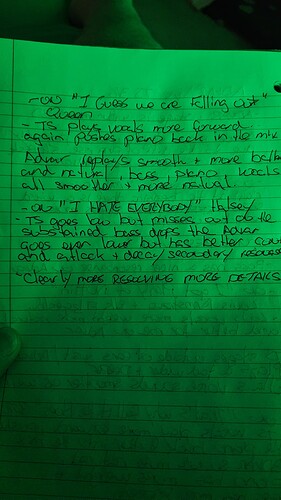 - ON "I Guess we are Falling out"
Queen
- TS plays vocals more forward
again pushes piano back in the mix
Advar replays smooth + more better
and natural, bass, piano vocals
all smoother + more natural.
- ON "I HATE EVERYBODY" Halsey
- TS goes low but misses out on the
sustained bass drops the Advar
goes even lower but has better
and attack + decay secondary
- Clearly MORE RESOLVING MORE DETAILS